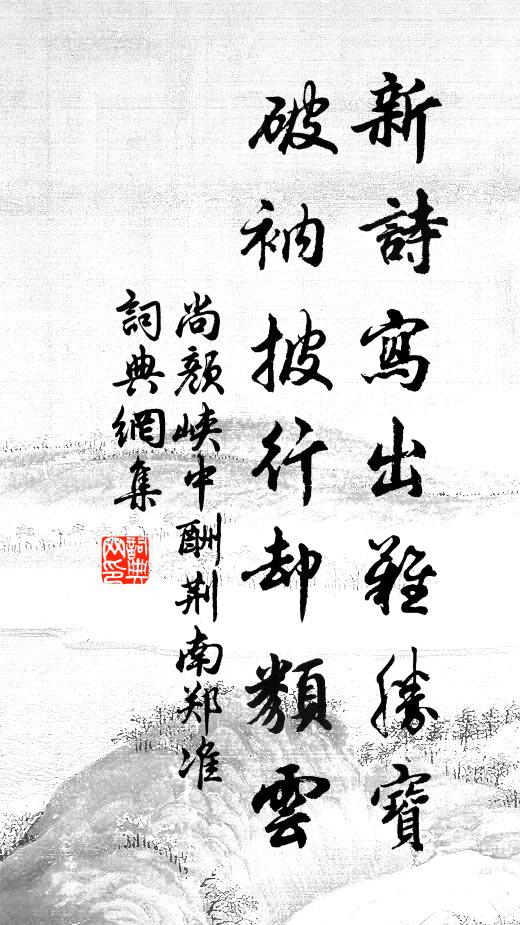 新詩寫出難勝寶
破衲披行却類雲
尚顏峽中酬荆南郑准
詞典網集
詞典網印